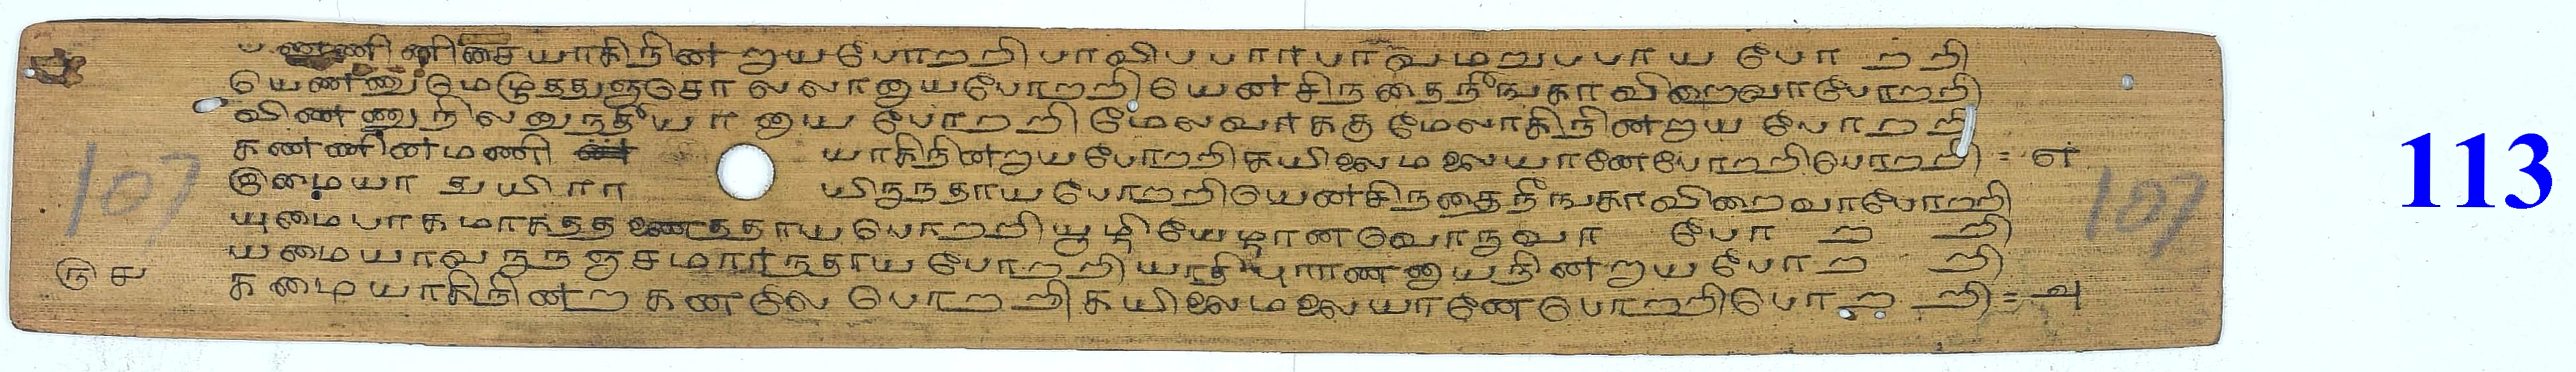 பண்ணினிசையாகிநின் றாய போறறி பாவிபபார்பாவமறுபபாய போ ற றி
யெண்ணுமெழுத்துஞசொ லலானுயபோறறி யென்சிநதைநீஙகாவிறைவாபோறறி
விண்ணுநிலனுநதீயா னுய போறறி மேலவர்ககு மேலாகிநின்றுய போ ற றி
கண்ணின்மணி யாகிநின்றுயபோறறி கயிலைமலையானேபோறறிபோறறி = எ
இமையா துயிரா யிருநதாயபோறறி யென்சிநதைநீஙகாவிறைவாபோறறி
யுமைபாகமாகதத ணைததாய போறறி யூழியேழானவொருவா போ ற றி
யமையாவருநஞசமார்நதாய போறறி யாதிபுராணனுயநின்றுய போ ற றி
ருச கமையாகிநின்ற கனலே போறறி கயிலைமலையானேபோறறிபோற றி = அ
107
107
113